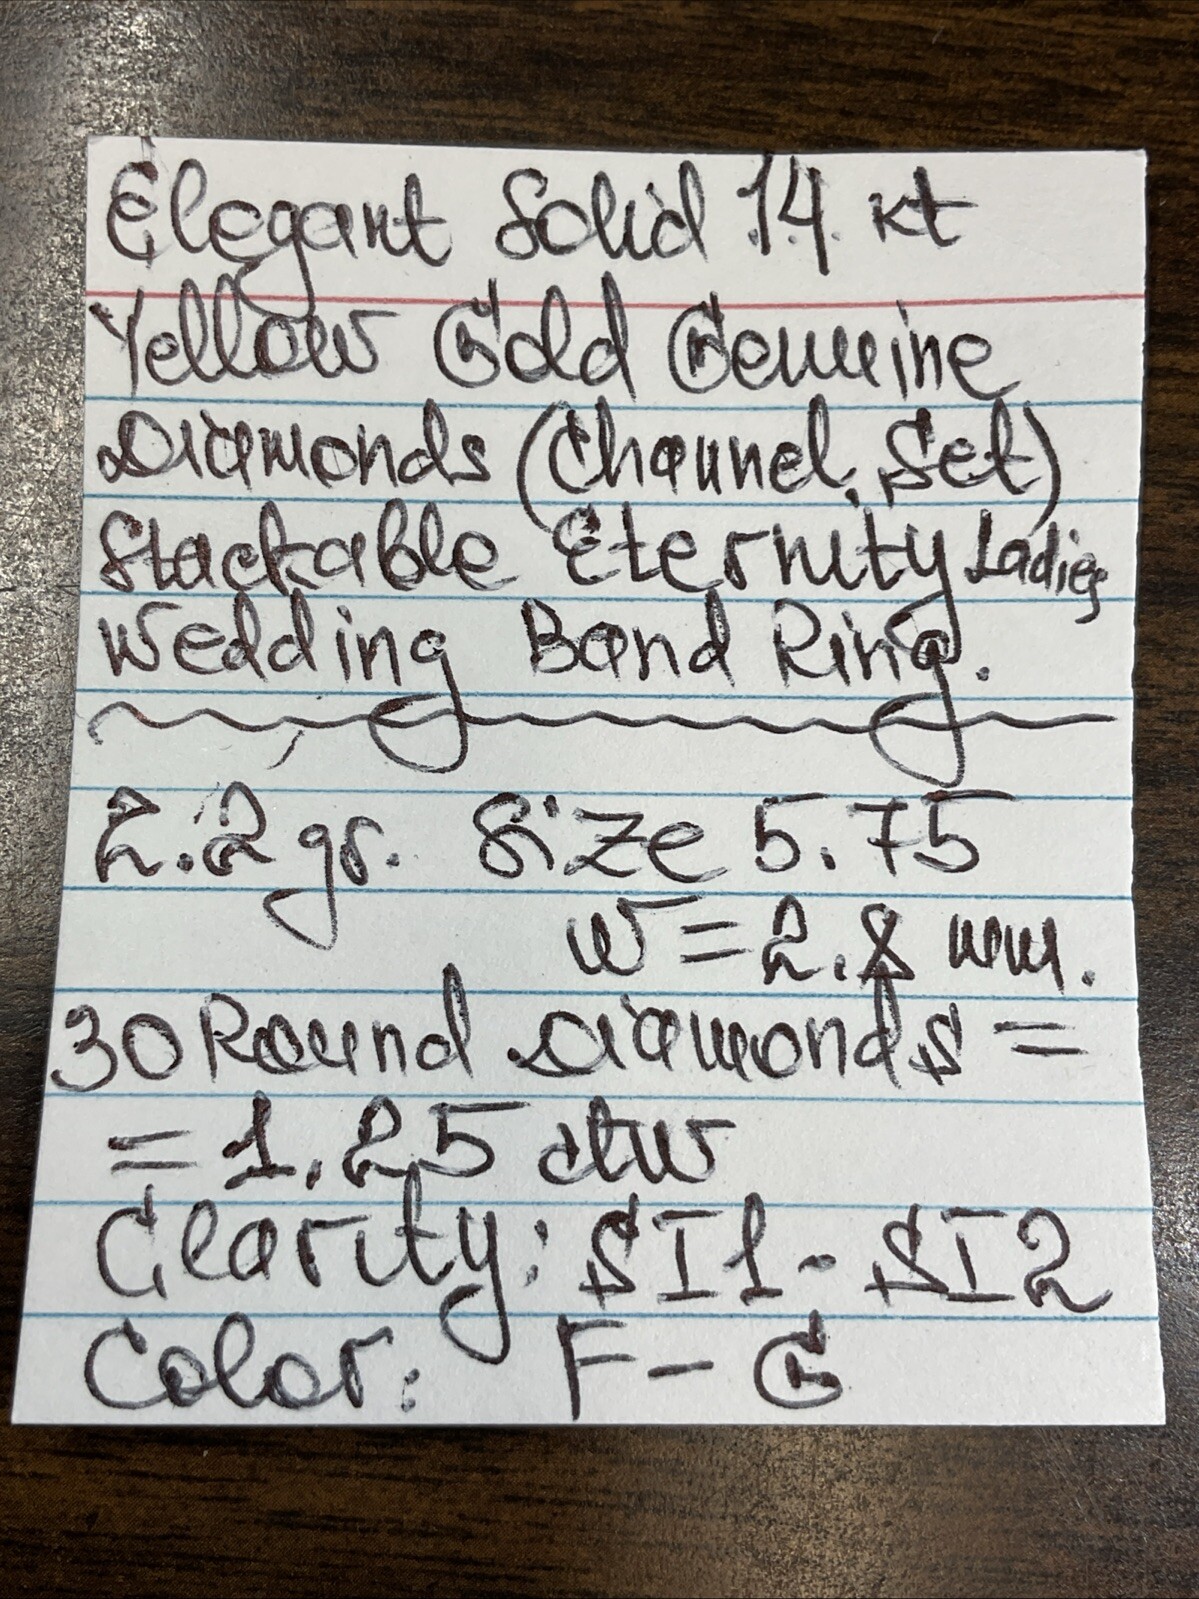 Elegant Solid 14 kt
Yellow Gold Genuine
Diamonds (Channel Set)
Stackable Eternity Ladies
Wedding Band Ring.
2.2 gr. Size 5.75
W = 2.8 mm.
30 Round Diamonds =
= 1.25 ctw
Clarity: SI1 - SI2
Color: F - G